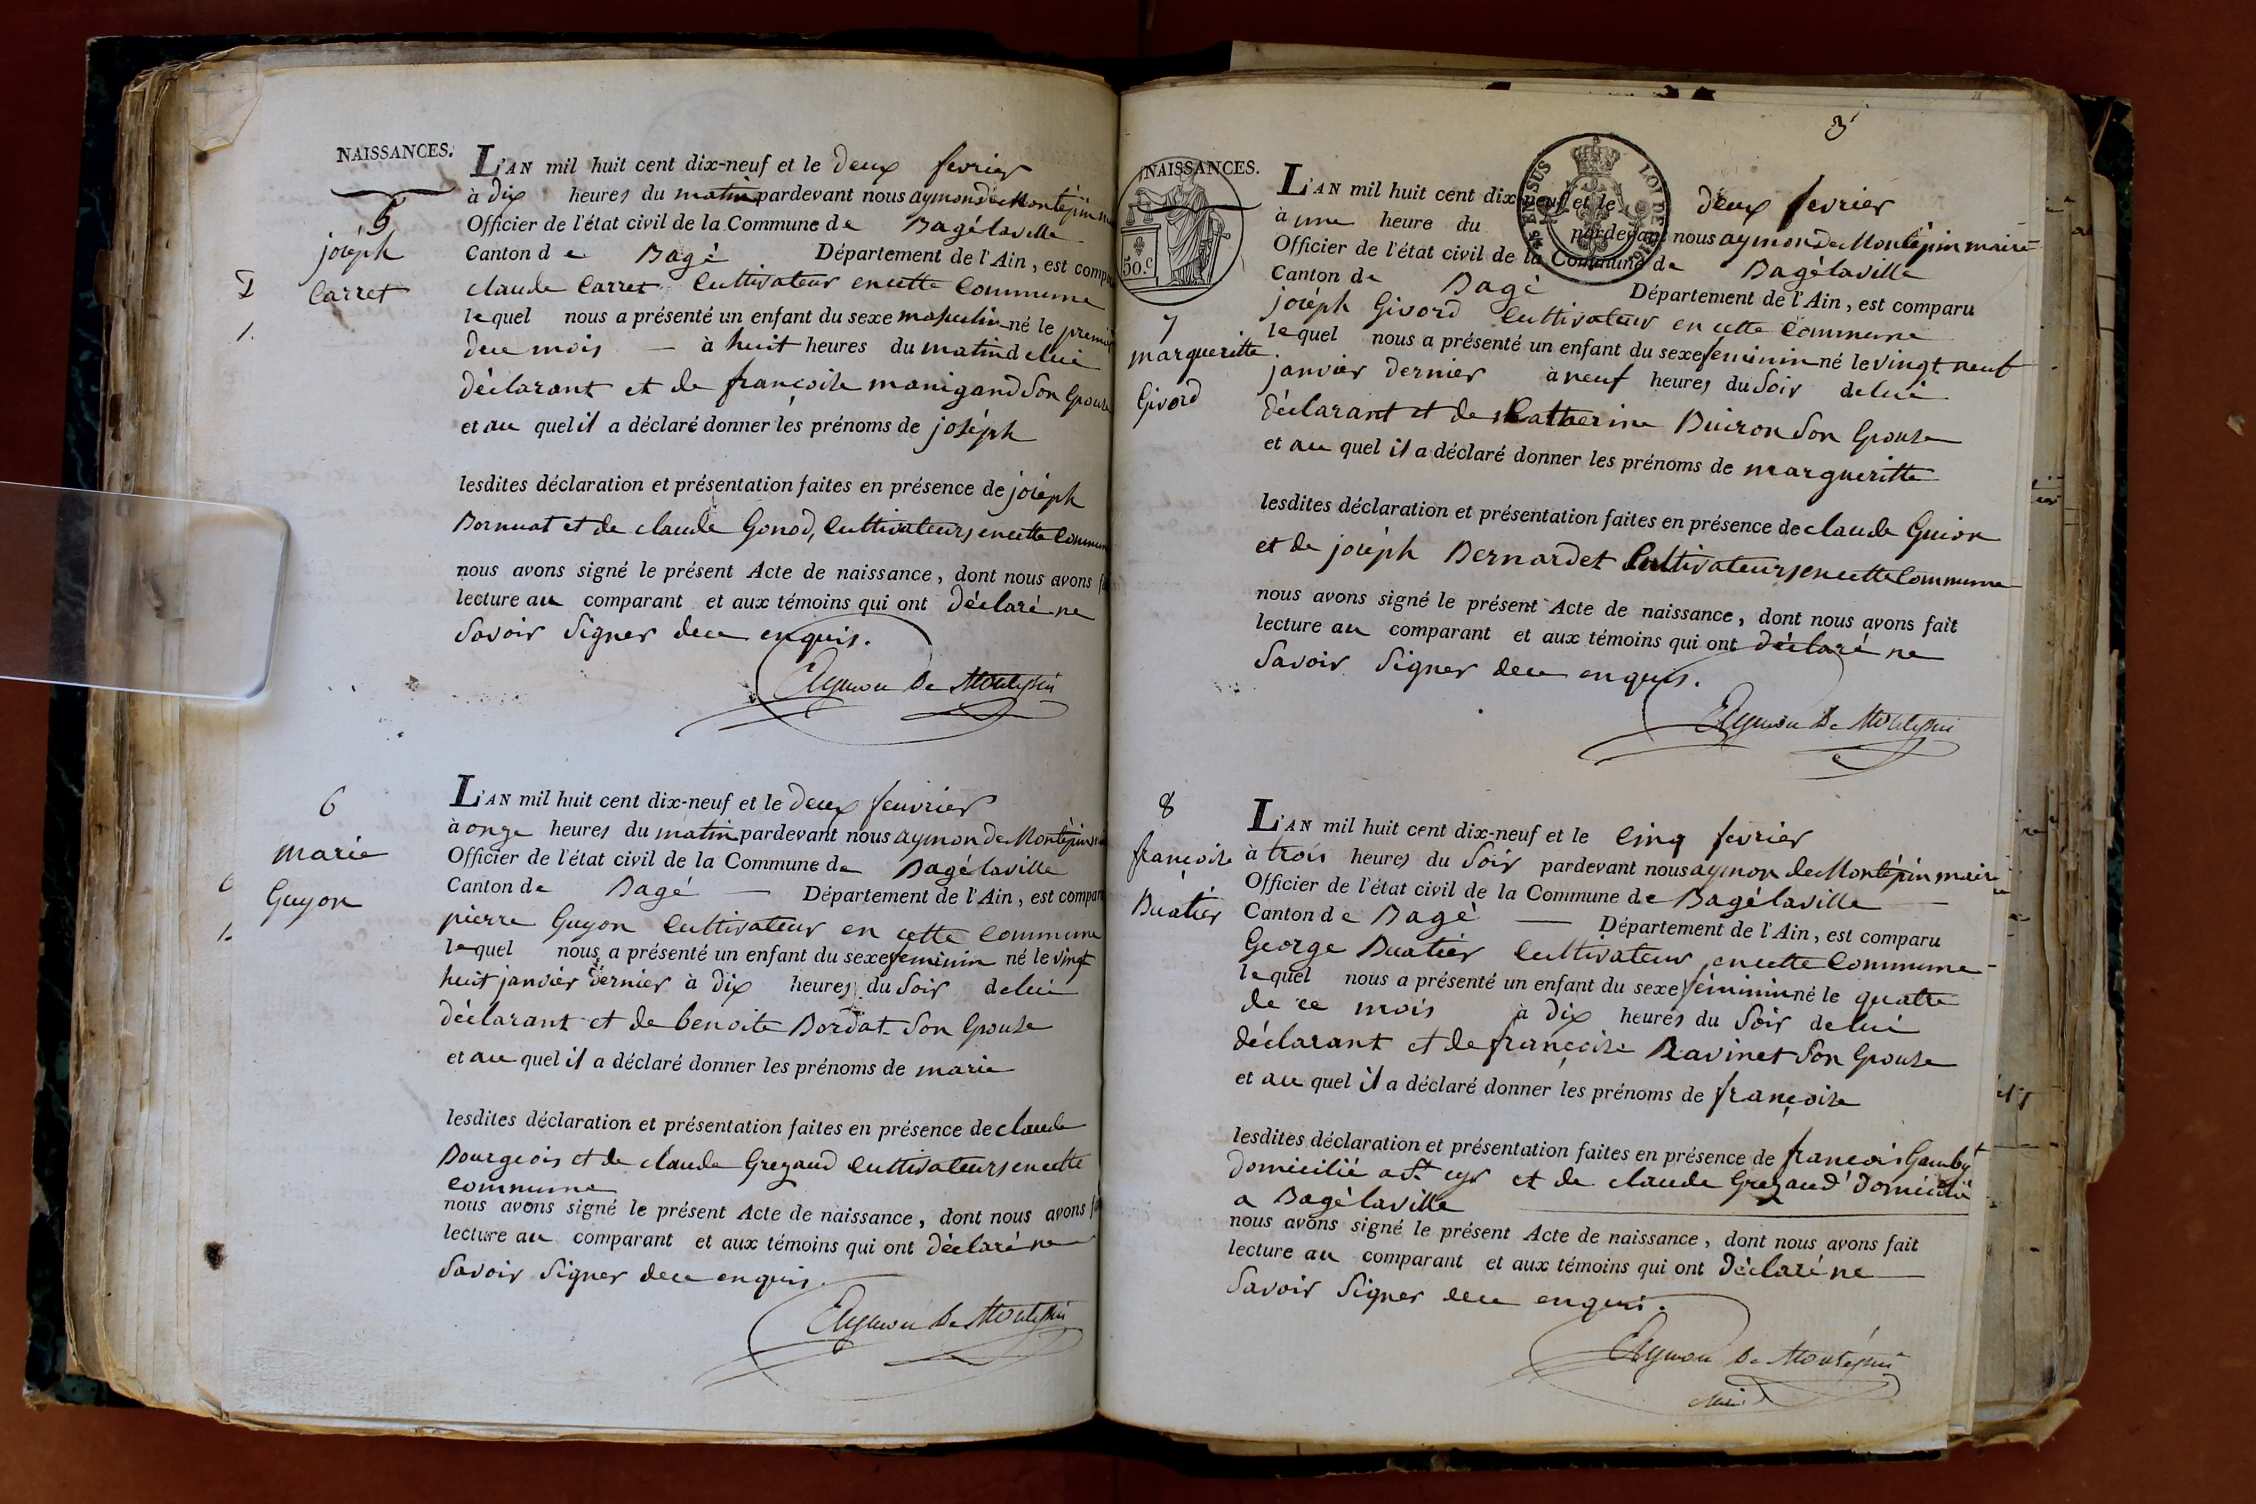 NAISSANCES.
5
joseph
Carret
1.
L'AN mil huit cent dix-neuf et le deux fevrier
à dix heures du matin pardevant nous aymon de Montépin
Officier de l'état civil de la Commune de Bagélaville
Canton de Bagé Département de l'Ain, est compa
claude Carret Cultivateur en cette Commune
lequel nous a présenté un enfant du sexe masculin né le premier
du mois — à huit heures du matin de lui
déclarant et de françoise manigand Son Epouse
et au quel il a déclaré donner les prénoms de joséph
lesdites déclaration et présentation faites en présence de joséph
Bornuat et de claude Gonod, Cultivateurs en cette Commun
nous avons signé le présent Acte de naissance, dont nous avons f
lecture au comparant et aux témoins qui ont déclaré ne
Savoir Signer de ce enquis.
Aymon De Montépin
6
marie
Guyon
1.
L'AN mil huit cent dix-neuf et le deux feuvrier
à onze heures du matin pardevant nous aymon de Montépin
Officier de l'état civil de la Commune de Bagélaville
Canton de Bagé — Département de l'Ain, est compar
pierre Guyon Cultivateur en cette Commune
lequel nous a présenté un enfant du sexe feminin né le vingt
huit janvier dernier à dix heures du Soir de lui
déclarant et de benoite Bordat Son Epouse
et au quel il a déclaré donner les prénoms de marie
lesdites déclaration et présentation faites en présence de claude
Bourgeois et de claude Grezaud Cultivateurs en cette
commune
nous avons signé le présent Acte de naissance, dont nous avons f
lecture au comparant et aux témoins qui ont déclaré ne
Savoir Signer de ce enquis.
Aymon De Montépin
3
NAISSANCES.
50.c
7
margueritte
Givord
L'AN mil huit cent dix-neuf et le deux fevrier
à une heure du pardevant nous aymon de Montépin maire
Officier de l'état civil de la Commune de Bagélaville
Canton de Bagé Département de l'Ain, est comparu
joséph Givord Cultivateur en cette Commune
lequel nous a présenté un enfant du sexe feminin né le vingt neuf
janvier dernier à neuf heures du Soir de lui
déclarant et de Catherine Buiron Son Epouse
et au quel il a déclaré donner les prénoms de margueritte
lesdites déclaration et présentation faites en présence de claude Guion
et de joséph Bernardet Cultivateurs en cette Commune
nous avons signé le présent Acte de naissance, dont nous avons fait
lecture au comparant et aux témoins qui ont déclaré ne
Savoir Signer de ce enquis.
Aymon De Montépin
8
françoise
Buatier
L'AN mil huit cent dix-neuf et le Cinq fevrier
à trois heures du Soir pardevant nous aymon de Montépin maire
Officier de l'état civil de la Commune de Bagélaville
Canton de Bagé — Département de l'Ain, est comparu
George Buatier Cultivateur en cette Commune
lequel nous a présenté un enfant du sexe féminin né le quatre
de ce mois à dix heures du Soir de lui
déclarant et de françoise Ravinet Son Epouse
et au quel il a déclaré donner les prénoms de françoise
lesdites déclaration et présentation faites en présence de francois
domicilié a St cyr et de claude Grezaud domicilié
a Bagélaville
nous avons signé le présent Acte de naissance, dont nous avons fait
lecture au comparant et aux témoins qui ont déclaré ne
Savoir Signer de ce enquis.
Aymon De Montépin